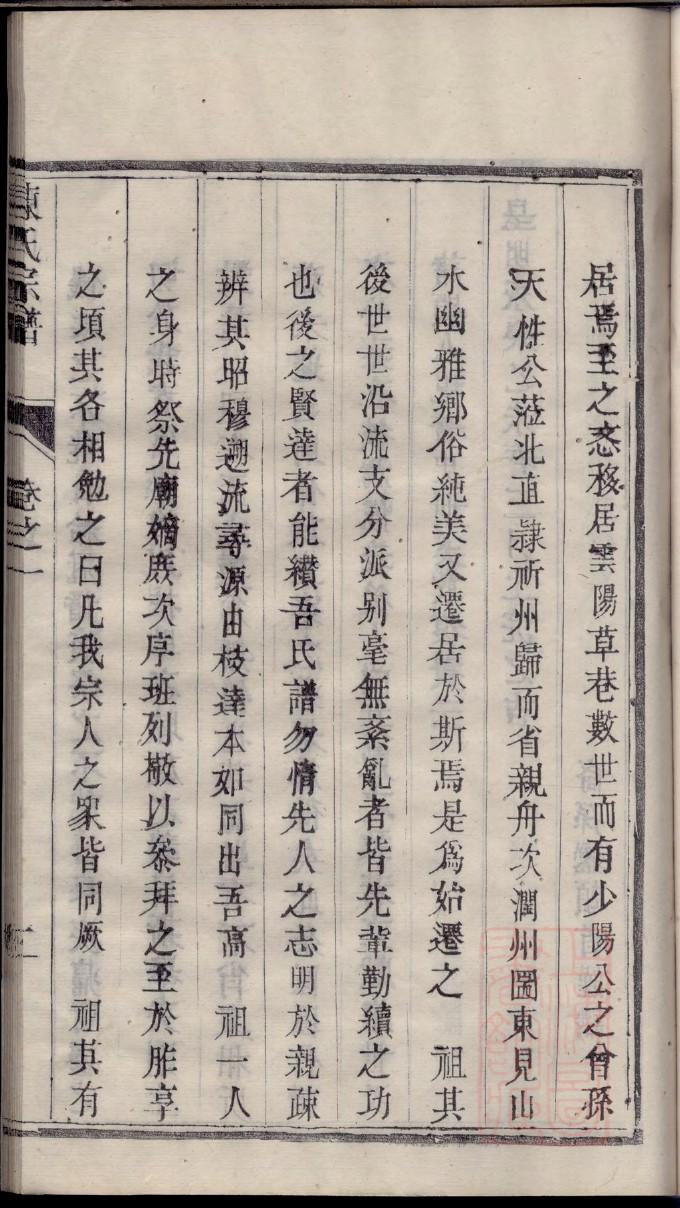 居焉至之忞移居雲陽草巷數世而有少陽公之曾孫
天性公蒞北直隸祈州歸而省親舟次潤州圌東見山
水幽雅鄉俗純美又遷居於斯焉是爲始遷之　祖其
後世世沿流支分派别毫無紊亂者皆先輩勤續之功
也後之賢達者能纘吾氏譜勿惰先人之志明於親疎
辨其昭穆遡流尋源由枝達本如同出吾高曾　祖一人
之身時祭先廟嫡庶次序班列敬以叅拜之至於胙享
之頃其各相勉之曰凡我宗人之衆皆同厥　祖其有
陳氏宗譜
卷之一